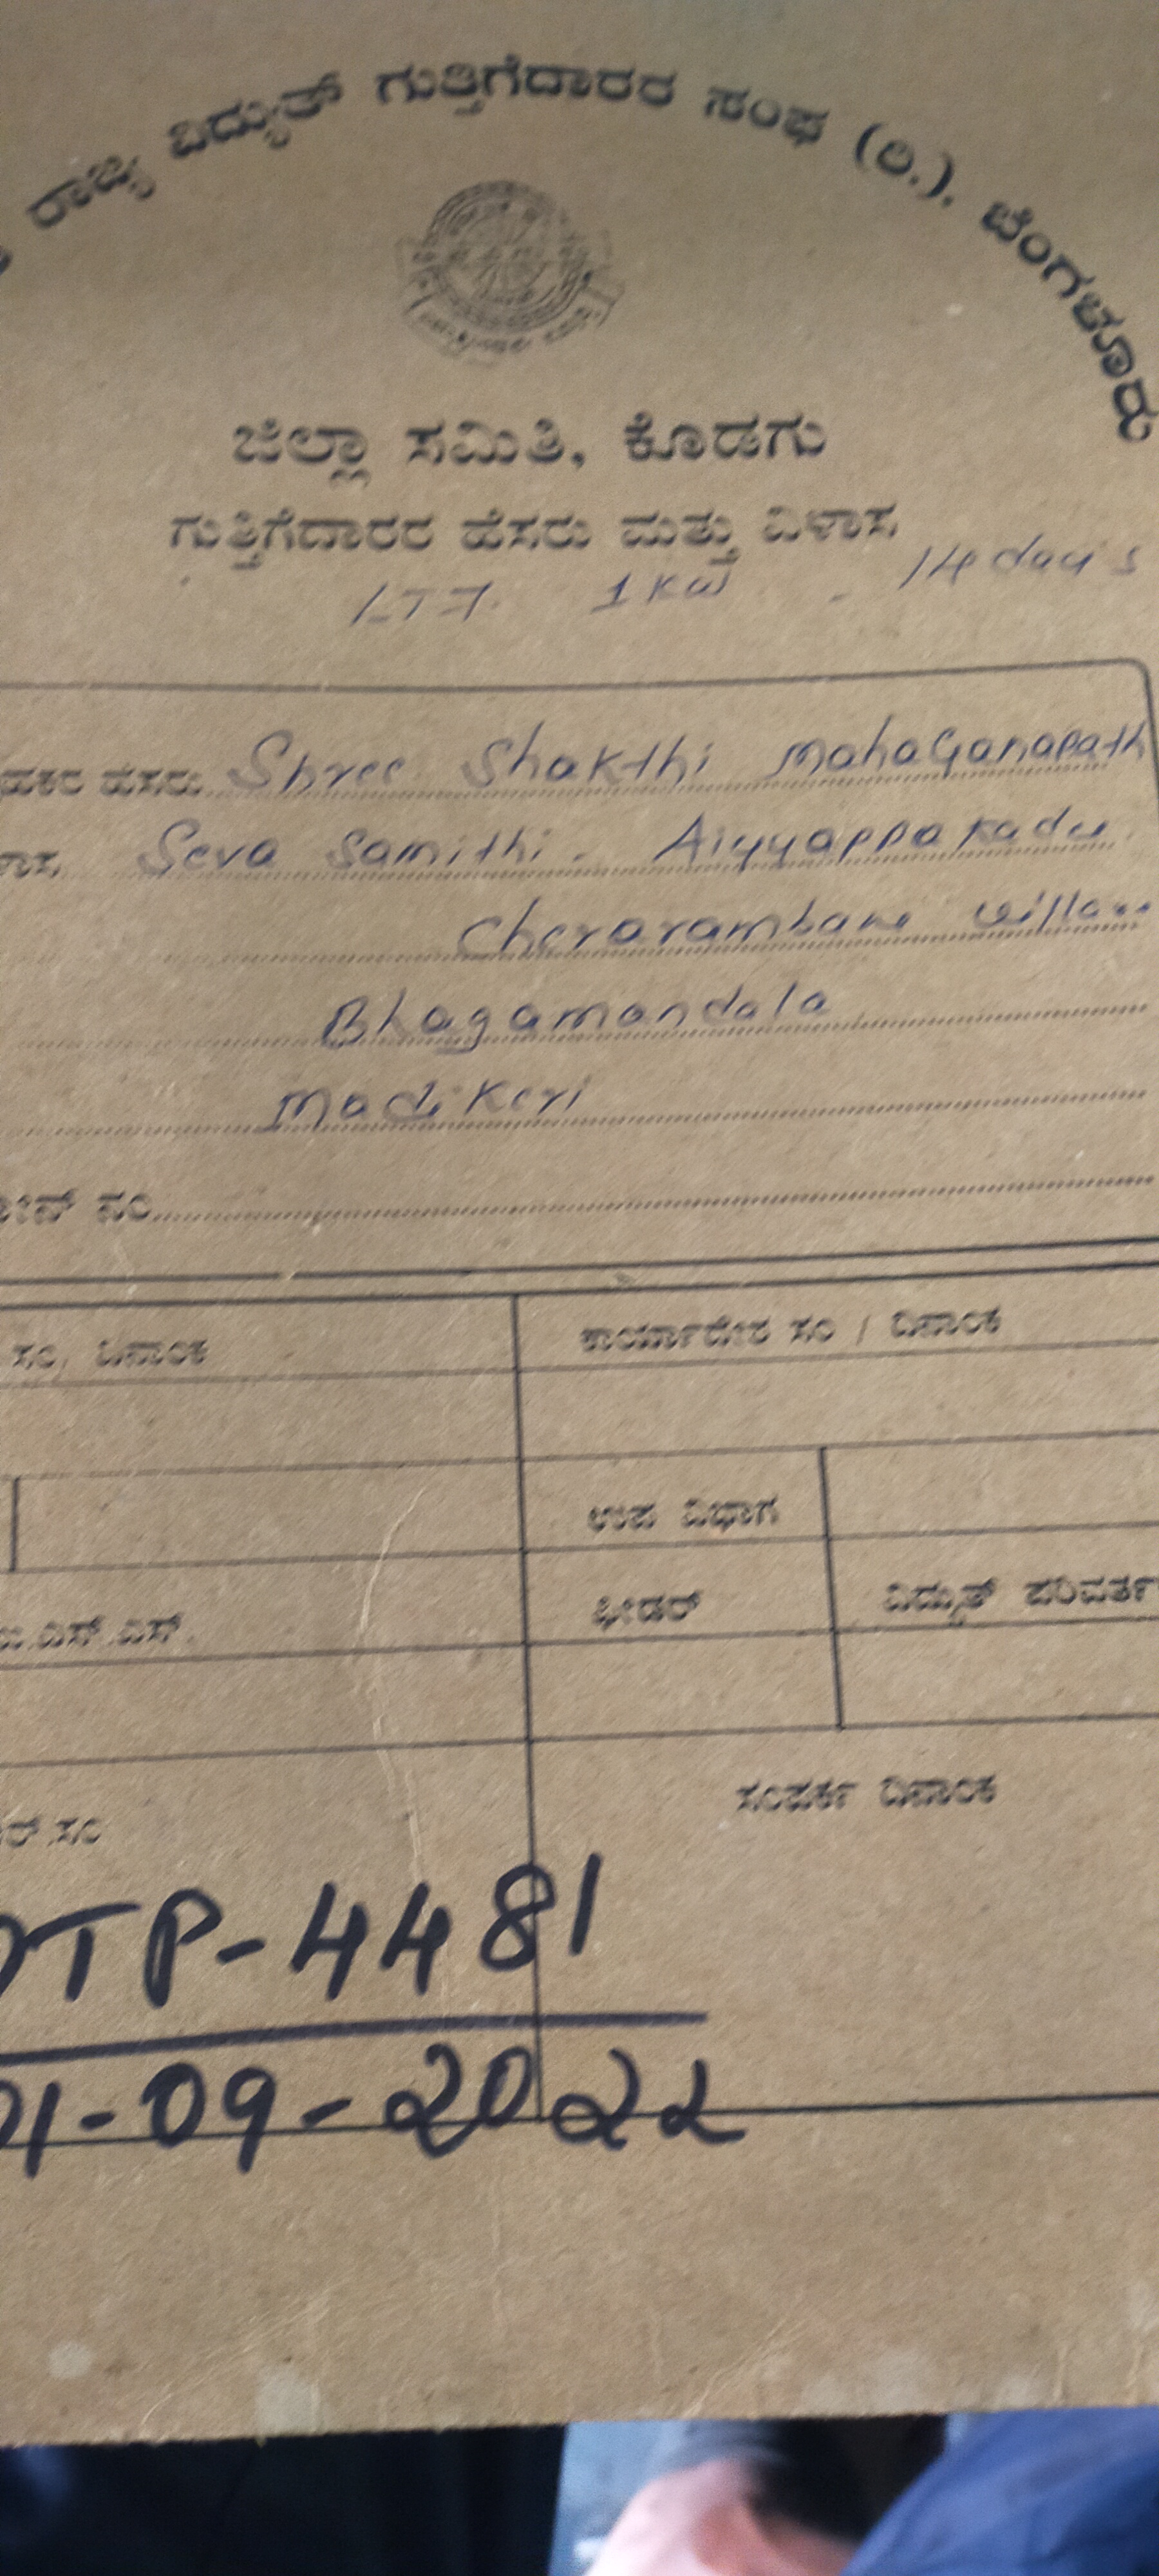 ರಾಜ್ಯ ವಿದ್ಯುತ್ ಗುತ್ತಿಗೆದಾರರ ಸಂಘ (ರಿ.), ಬೆಂಗಳೂರು
ಜಿಲ್ಲಾ ಸಮಿತಿ, ಕೊಡಗು
ಗುತ್ತಿಗೆದಾರರ ಹೆಸರು ಮತ್ತು ವಿಳಾಸ
LT7. 1KW - 14 days
ಹೆಸರು Shree Shakthi MahaGanapath
Seva Samithi. Aiyyappa Kadu
Cherarambane village
Bhagamandala
Madikeri
ನಂ
ಸಂ/ ದಿನಾಂಕ ಕಾರ್ಯಾದೇಶ ಸಂ / ದಿನಾಂಕ
ಉಪ ವಿಭಾಗ
ಎಸ್.ಎಸ್. ಫೀಡರ್ ವಿದ್ಯುತ್ ಪರಿವರ್ತ
ಸಂ ಸಂಪರ್ಕ ದಿನಾಂಕ
TP-4481
01-09-2022